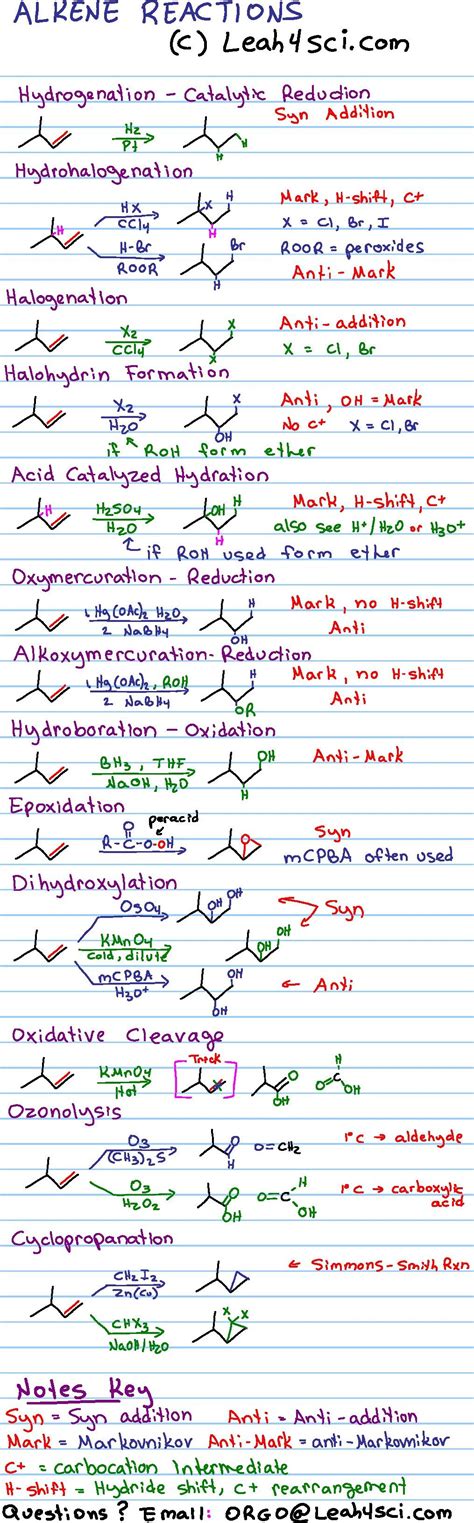 ALKENE REACTIONS
(C) Leah4sci.com
Hydrogenation - Catalytic Reduction
Syn Addition
H2
Pt
H
H
Hydrohalogenation
H
HX
CCl4
X
H
H
Mark, H-shift, C+
X = Cl, Br, I
H-Br
ROOR
Br
H
ROOR = peroxides
Anti - Mark
Halogenation
X2
CCl4
X
X
Anti-addition
X = Cl, Br
Halohydrin Formation
X2
H2O
X
OH
Anti, OH = Mark
No C+ X = Cl, Br
if ROH form ether
Acid Catalyzed Hydration
H
H2SO4
H2O
OH
H
H
Mark, H-shift, C+
also see H+/H2O or H3O+
if ROH used form ether
Oxymercuration - Reduction
1 Hg(OAc)2 H2O
2 NaBH4
H
OH
Mark, no H-shift
Anti
Alkoxymercuration-Reduction
1 Hg(OAc)2, ROH
2 NaBH4
H
OR
Mark, no H-shift
Anti
Hydroboration - Oxidation
BH3, THF
NaOH, H2O
OH
H
Anti-Mark
Epoxidation
peracid
O
R-C-O-OH
O
Syn
mCPBA often used
Dihydroxylation
OsO4
OH
OH
Syn
KMnO4
cold, dilute
OH
OH
mCPBA
H3O+
OH
OH
← Anti
Oxidative Cleavage
KMnO4
Hot
Trick
O
OH
H
O=C
OH
Ozonolysis
O3
(CH3)2S
O
H
O=CH2
1°C → aldehyde
O3
H2O2
O
OH
H
O=C
OH
1°C → carboxylic
acid
Cyclopropanation
CH2I2
Zn(Cu)
← Simmons-Smith Rxn
CHX3
NaOH/H2O
X X
Notes Key
Syn = Syn addition Anti = Anti-addition
Mark = Markovnikov Anti-Mark = anti-Markovnikov
C+ = carbocation Intermediate
H-shift = Hydride shift, C+ rearrangement
Questions? Email: ORGO@Leah4sci.com